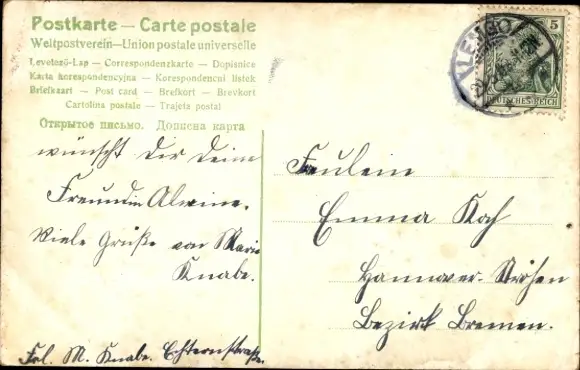 Postkarte — Carte postale
Weltpostverein — Union postale universelle
Levelező-Lap — Correspondenzkarte — Dopisnice
Karta korespondencyjna — Korespondenční lístek
Briefkaart — Post card — Brefkort — Brevkort
Cartolina postale — Tarjeta postal
Открытое письмо.
wünscht Dir Deine
Freundin Alwine.
Viele Grüße von Marie
Knabe.
Frl. M. Knabe. Echternstraße.
5
LEMGO
DEUTSCHES REICH
Fräulein
Emma Koch
Hannover-
Bezirk Bremen.